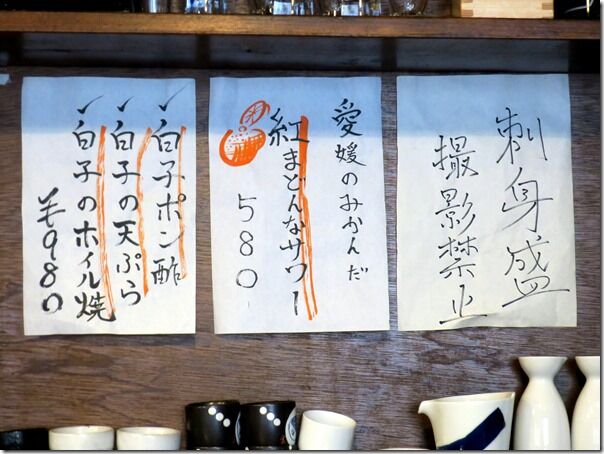 刺身盛
撮影禁止
愛媛のみかんだ
紅まどんなサワー
580
✓白子ポン酢
✓白子の天ぷら
✓白子のホイル焼
¥980